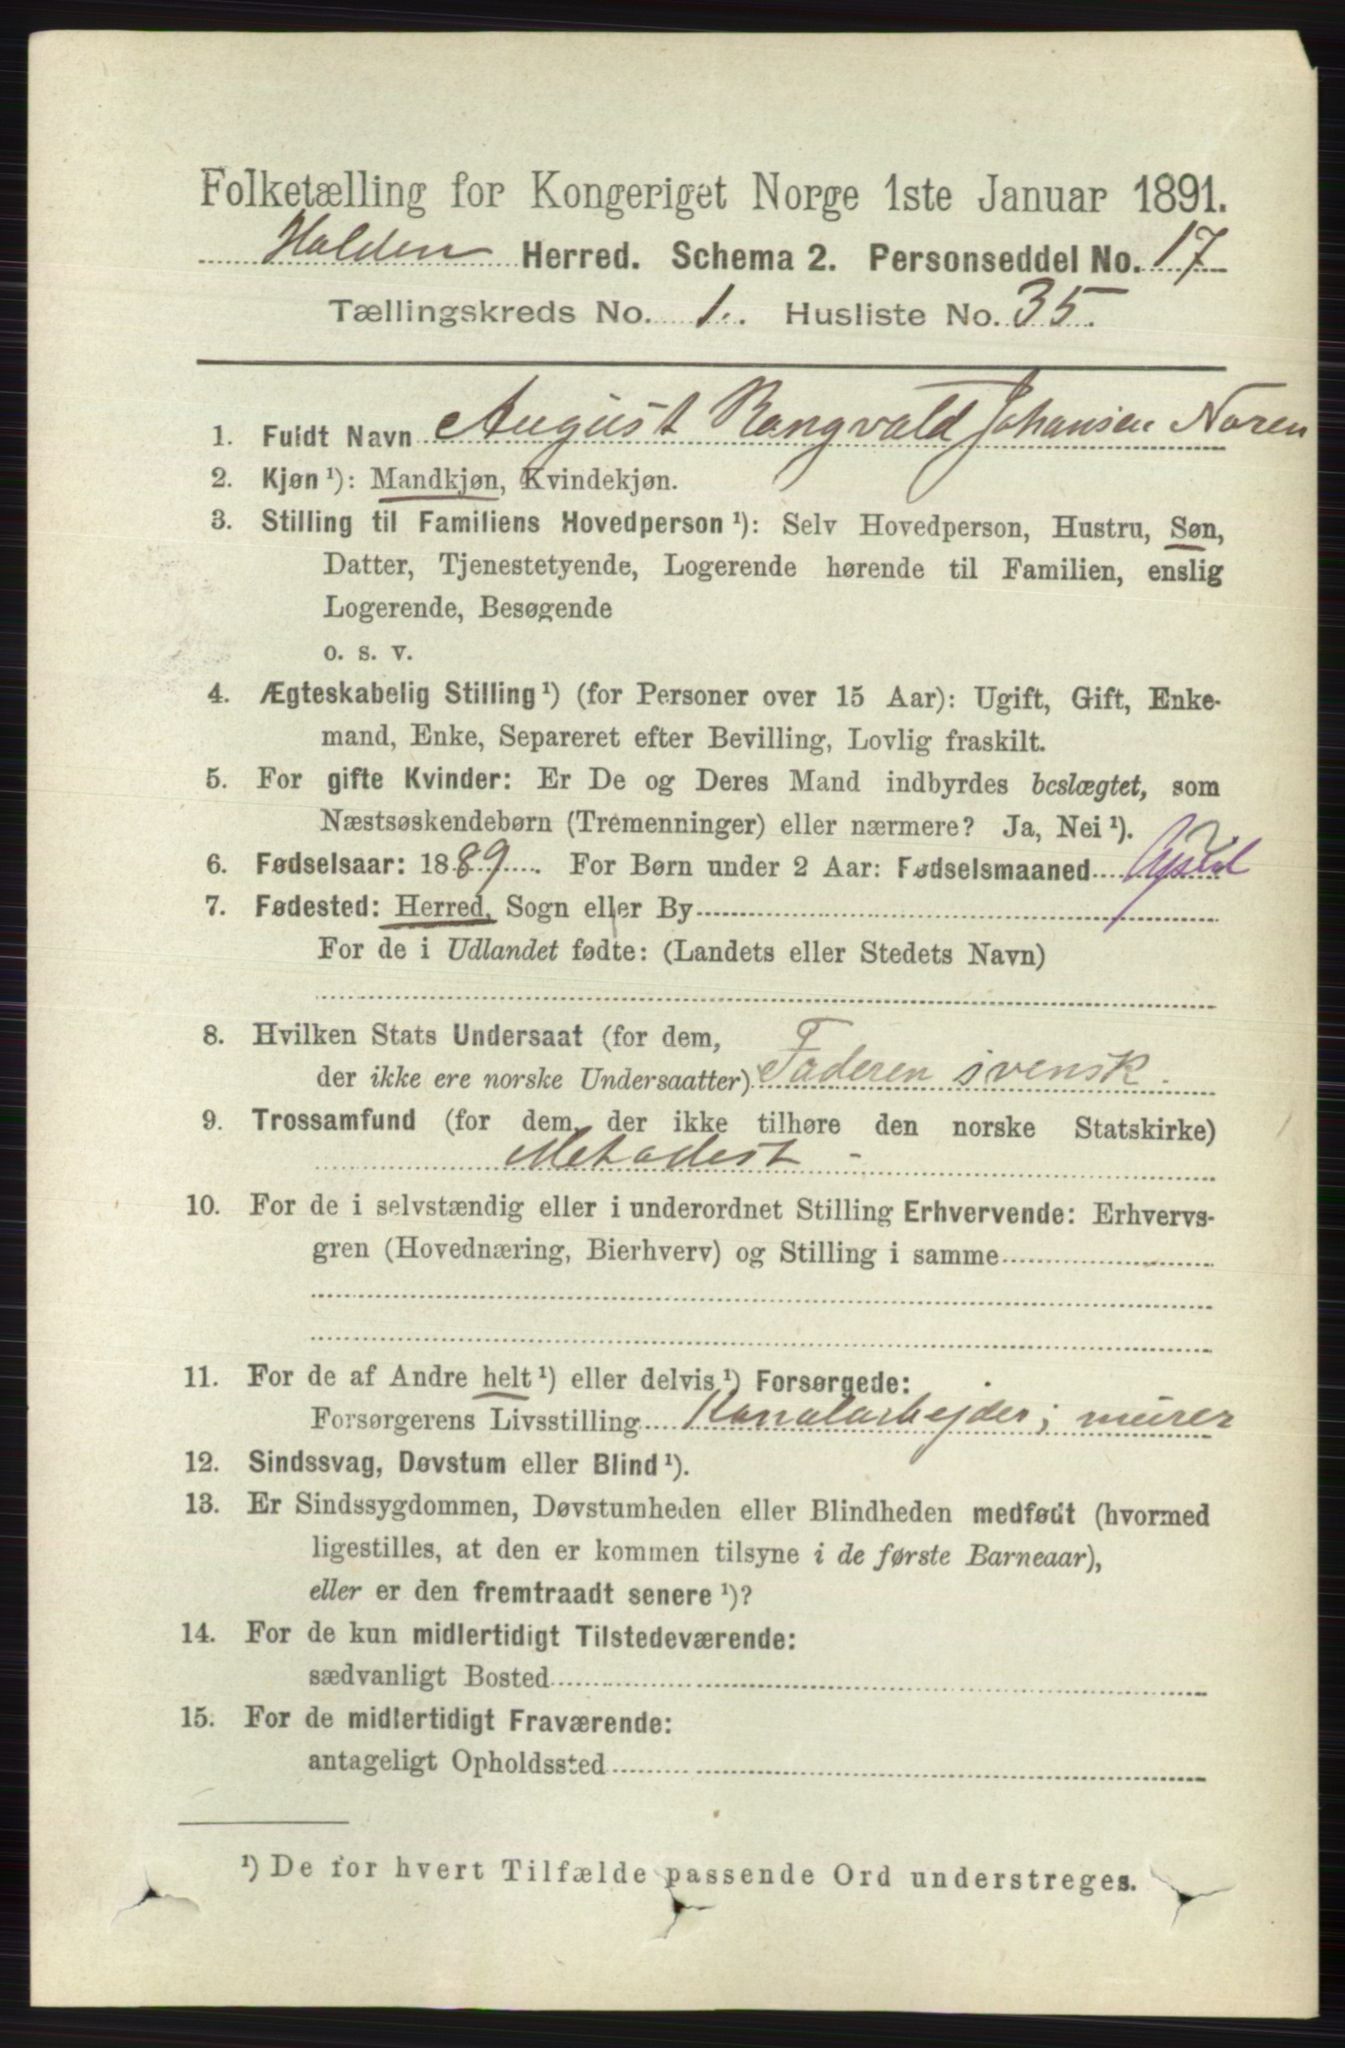 Folketælling for Kongeriget Norge 1ste Januar 1891.
Holden Herred. Schema 2. Personseddel No. 17
Tællingskreds No. 1. Husliste No. 35.
1. Fuldt Navn August Rangvald Johansen Noren
2. Kjøn ¹): Mandkjøn, Kvindekjøn.
3. Stilling til Familiens Hovedperson ¹): Selv Hovedperson, Hustru, Søn,
Datter, Tjenestetyende, Logerende hørende til Familien, enslig
Logerende, Besøgende
o. s. v.
4. Ægteskabelig Stilling ¹) (for Personer over 15 Aar): Ugift, Gift, Enke-
mand, Enke, Separeret efter Bevilling, Lovlig fraskilt.
5. For gifte Kvinder: Er De og Deres Mand indbyrdes beslægtet, som
Næstsøskendebørn (Tremenninger) eller nærmere? Ja, Nei ¹).
6. Fødselsaar: 1889. For Børn under 2 Aar: Fødselsmaaned
7. Fødested: Herred, Sogn eller By
For de i Udlandet fødte: (Landets eller Stedets Navn)
8. Hvilken Stats Undersaat (for dem,
der ikke ere norske Undersaatter) Faderen svensk.
9. Trossamfund (for dem, der ikke tilhøre den norske Statskirke)
Metodist -
10. For de i selvstændig eller i underordnet Stilling Erhvervende: Erhvervs-
gren (Hovednæring, Bierhverv) og Stilling i samme
11. For de af Andre helt ¹) eller delvis ¹) Forsørgede:
Forsørgerens Livsstilling Kanalarbejder; murer
12. Sindssvag, Døvstum eller Blind ¹).
13. Er Sindssygdommen, Døvstumheden eller Blindheden medfødt (hvormed
ligestilles, at den er kommen tilsyne i de første Barneaar),
eller er den fremtraadt senere ¹)?
14. For de kun midlertidigt Tilstedeværende:
sædvanligt Bosted
15. For de midlertidigt Fraværende:
antageligt Opholdssted
¹) De for hvert Tilfælde passende Ord understreges.